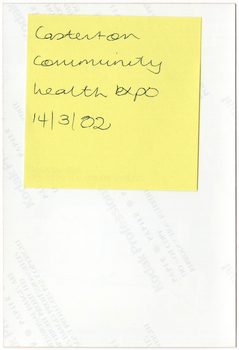 Casterton
Community
health expo
14/3/02